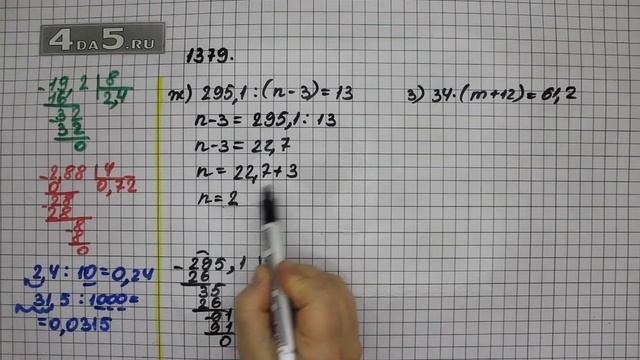 4DA5.RU
1379.
-19,2 | 8
16, | 2,4
-32
32
0
-2,88 | 4
0 | 0,72
-28
28
-8
8
0
2,4 : 10 = 0,24
31,5 : 1000 =
= 0,0315
ж) 295,1 : (n - 3) = 13
n - 3 = 295,1 : 13
n - 3 = 22,7
n = 22,7 + 3
n = 2
-295,1
26
35
26
-91
91
0
з) 34 · (m + 12) = 61,2